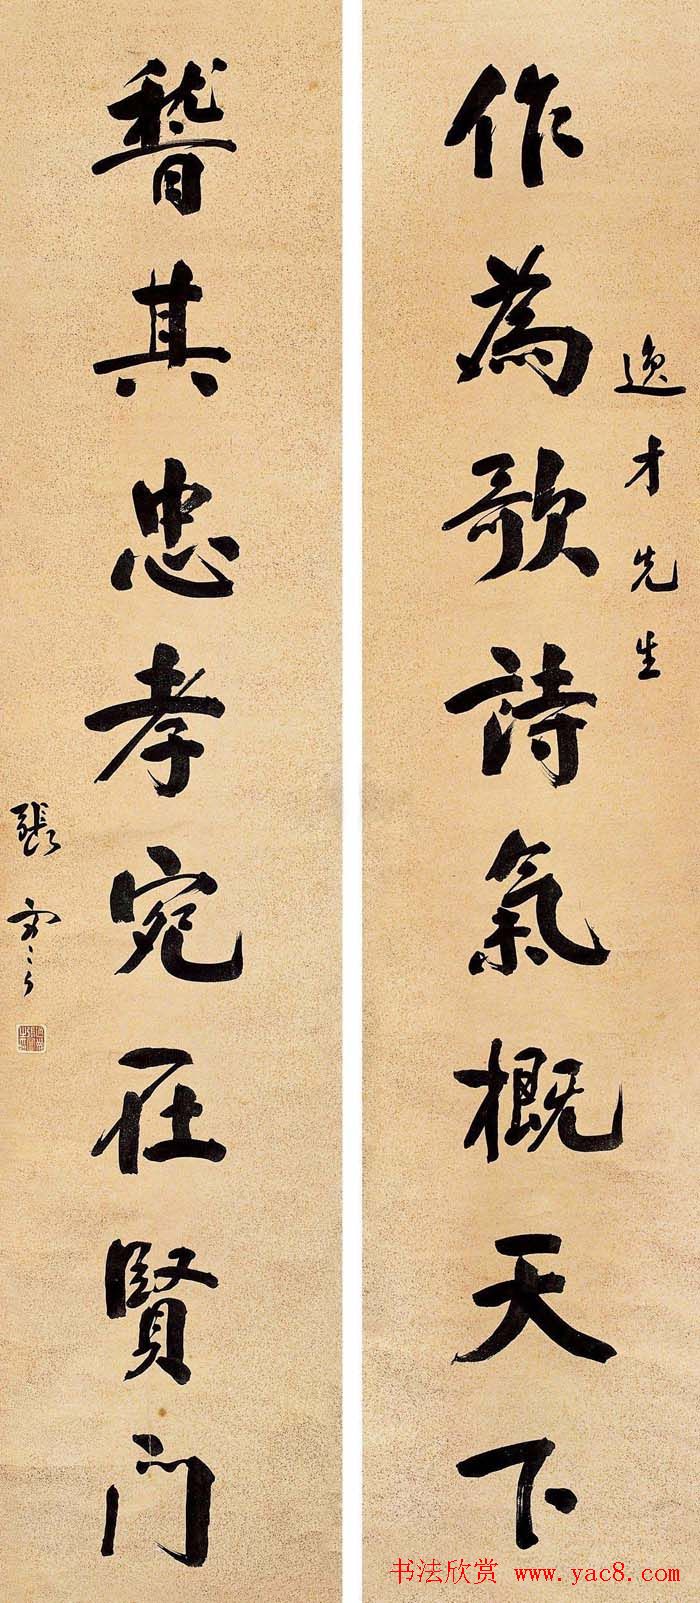 逸才先生
作為歌詩氣概天下
稽其忠孝宛在賢門
張謇
书法欣赏 www.yac8.com